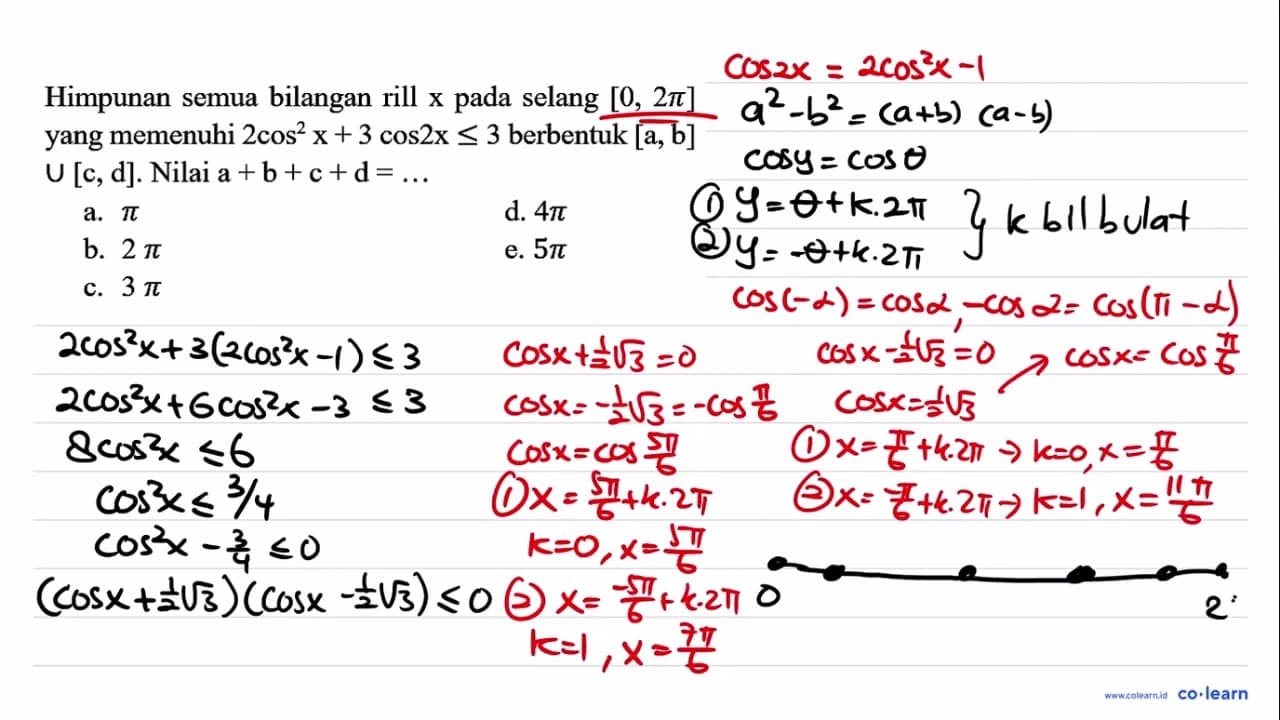 Himpunan semua bilangan rill x pada selang [0, 2π]
yang memenuhi 2cos² x + 3 cos2x ≤ 3 berbentuk [a, b]
∪ [c, d]. Nilai a + b + c + d = …
a. π
b. 2 π
c. 3 π
d. 4π
e. 5π
cos2x = 2cos²x - 1
a² - b² = (a+b) (a-b)
cosy = cos θ
① y = θ + k.2π
② y = -θ + k.2π
} k bil bulat
cos(-α) = cosα, -cos α = cos(π - α)
2cos²x + 3(2cos²x - 1) ≤ 3
2cos²x + 6cos²x - 3 ≤ 3
8cos²x ≤ 6
cos²x ≤ 3/4
cos²x - 3/4 ≤ 0
(cosx + ½√3)(cosx - ½√3) ≤ 0
cosx + ½√3 = 0
cosx = -½√3 = -cos π/6
cosx = cos 5π/6
① x = 5π/6 + k.2π
k=0, x = 5π/6
② x = -5π/6 + k.2π
k=1, x = 7π/6
cosx - ½√3 = 0
cosx = ½√3
→ cosx = cos π/6
① x = π/6 + k.2π → k=0, x = π/6
② x = -π/6 + k.2π → k=1, x = 11π/6
0
2
www.colearn.id co·learn